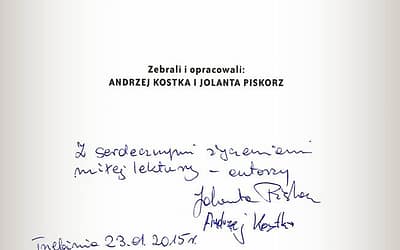 Zebrali i opracowali:
ANDRZEJ KOSTKA I JOLANTA PISKORZ
Z serdecznymi życzeniami
miłej lektury – autorzy
Jolanta Piskorz
Andrzej Kostka
Trzebinia 23.01.2015 r.